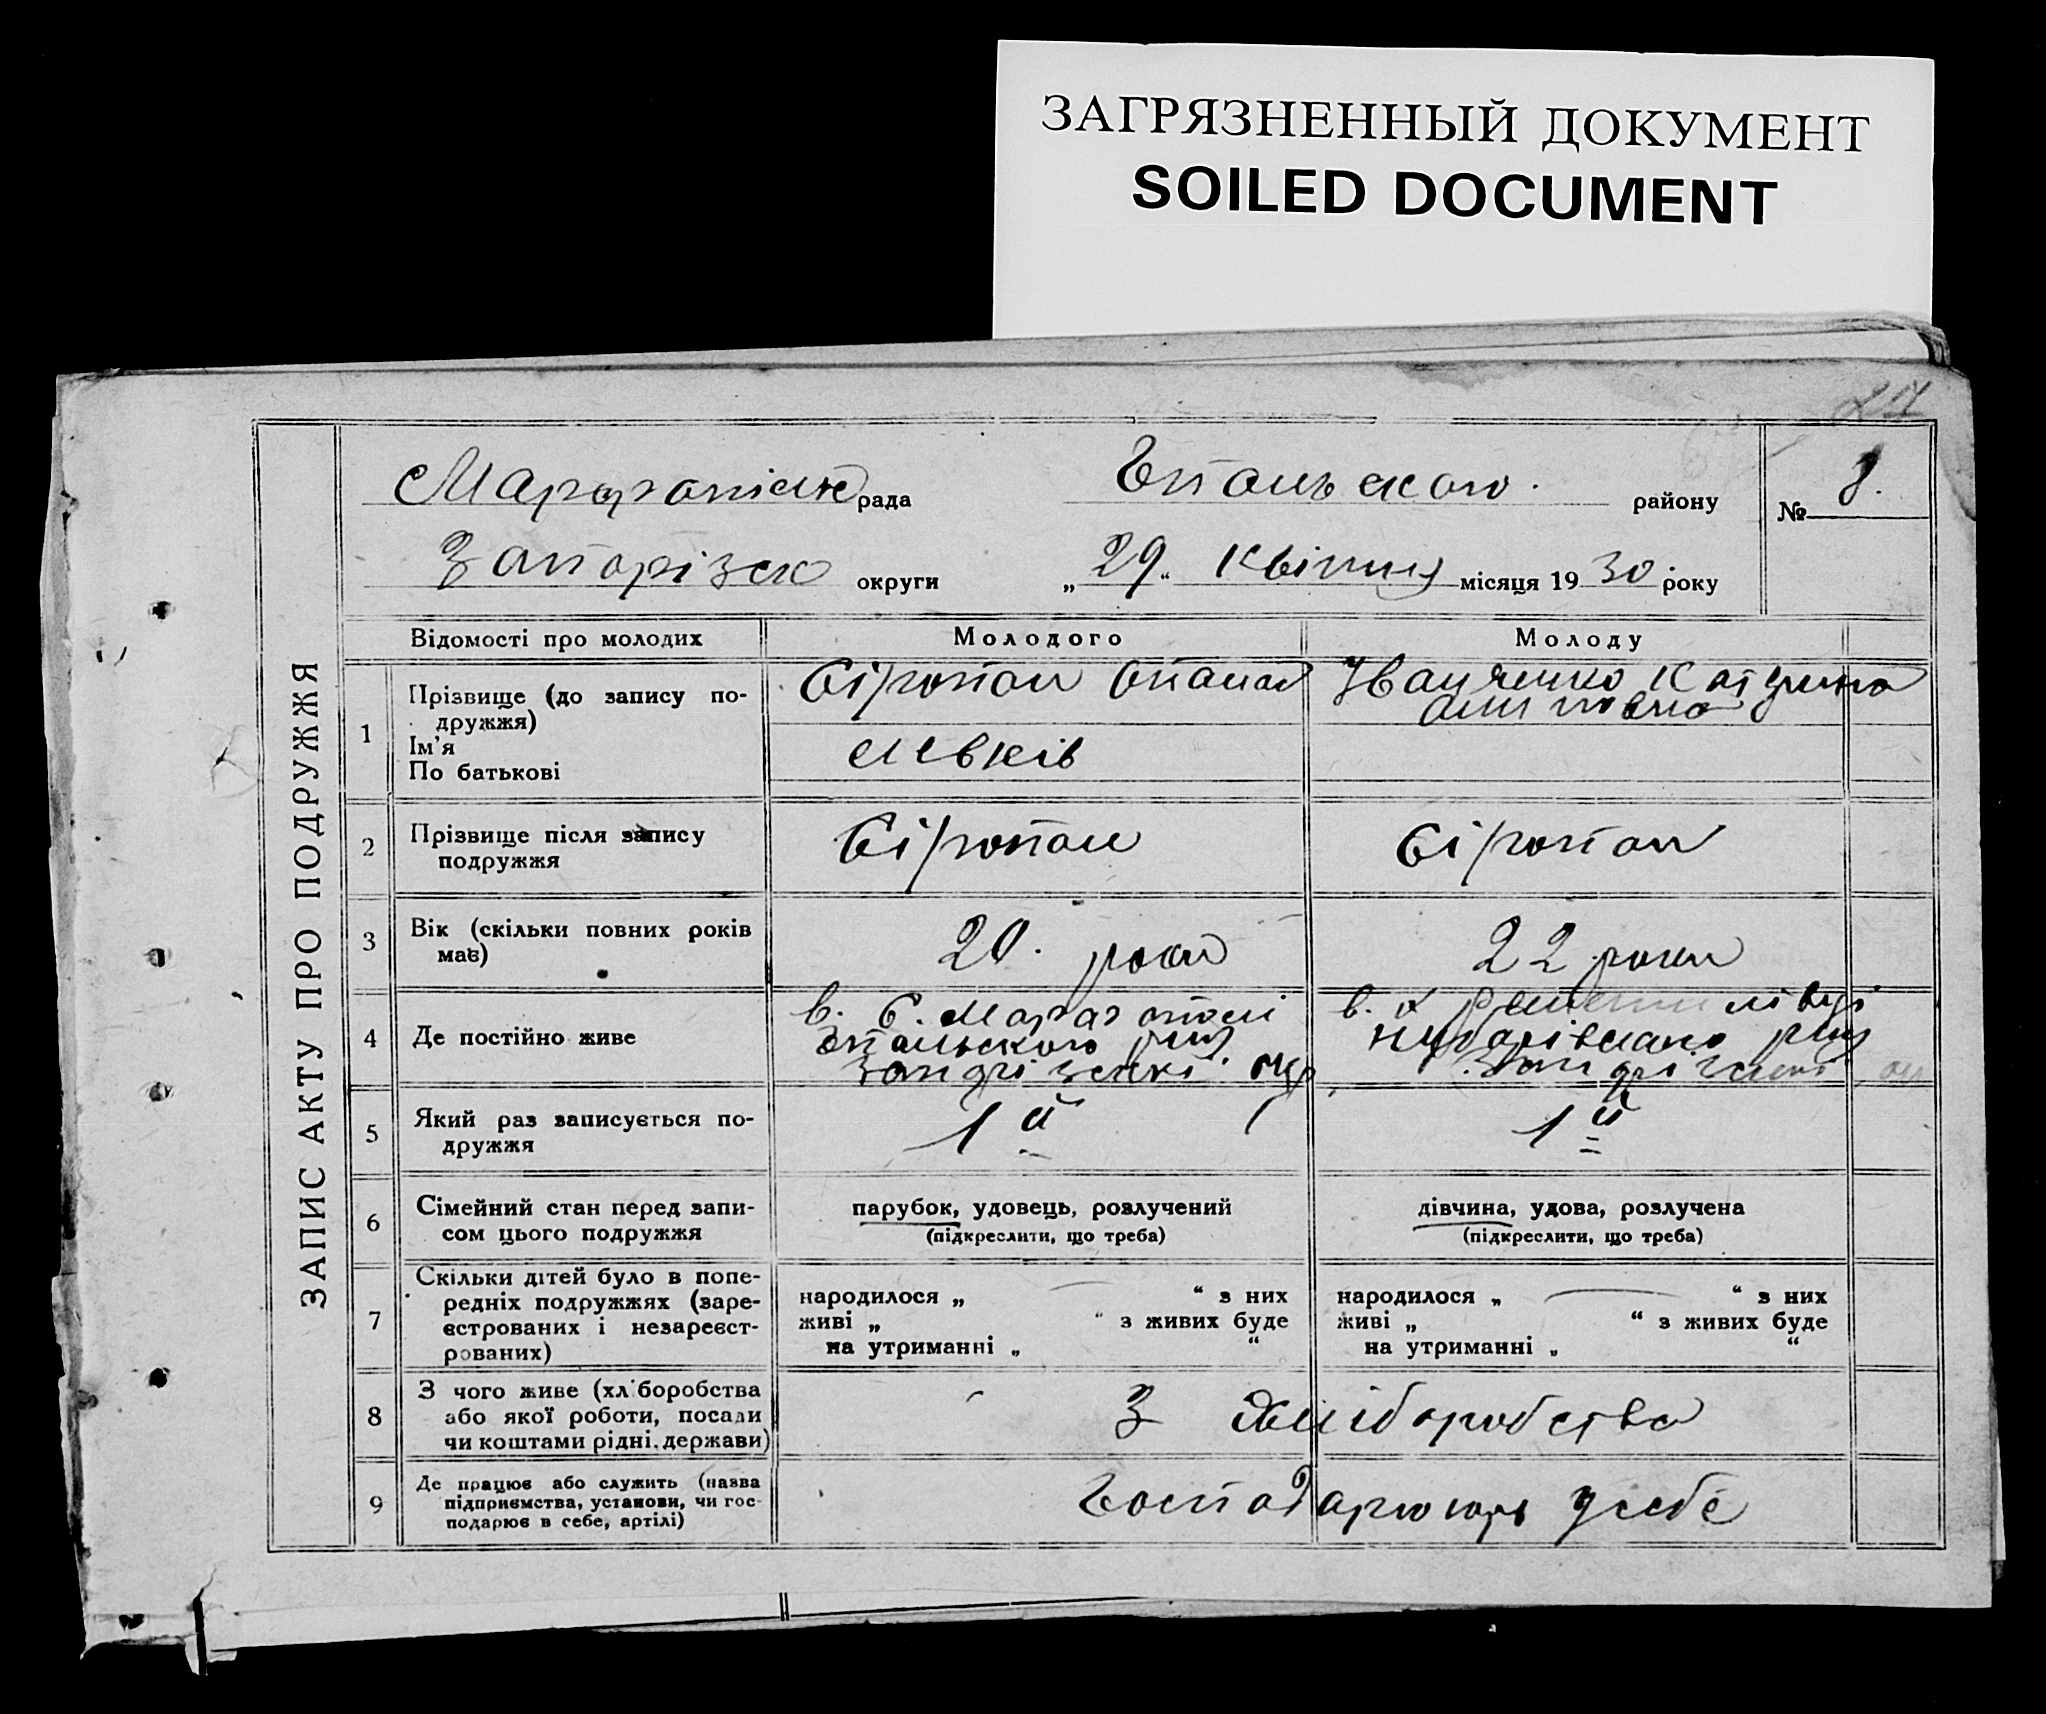 ЗАГРЯЗНЕННЫЙ ДОКУМЕНТ
SOILED DOCUMENT
ЗАПИС АКТУ ПРО ПОДРУЖЖЯ
рада района
району
№ 8.
Запорізск округи „29“ Квітня місяця 1930 року
Відомості про молодих
Молодого
Молоду
1
Прізвище (до запису подружжя)
Ім'я
По батькові
Сіропол Опанас
Левків
Іванченко Катерина
2
Прізвище після запису
подружжя
Сіропол
Сіропол
3
Вік (скільки повних років
має)
20. роки
22 роки
4
Де постійно живе
в. С.
Запорізскі. окр.
в.
Запоріжскі
5
Який раз записується по-
дружжя
1й
1й
6
Сімейний стан перед запи-
сом цього подружжя
парубок, удовець, розлучений
(підкреслити, що треба)
дівчина, удова, розлучена
(підкреслити, що треба)
7
Скільки дітей було в попе-
редніх подружжях (заре-
єстрованих і незареєст-
рованих)
народилося „ “ з них
живі „ “ з живих буде
на утриманні „ “
народилося „ “ з них
живі „ “ з живих буде
на утриманні „ “
8
З чого живе (хліборобства
або якої роботи, посади
чи коштами рідні, держави)
З хліборобства
9
Де працює або служить (назва
підприємства, установи, чи гос-
подарює в себе, артілі)
Господарюють у себе